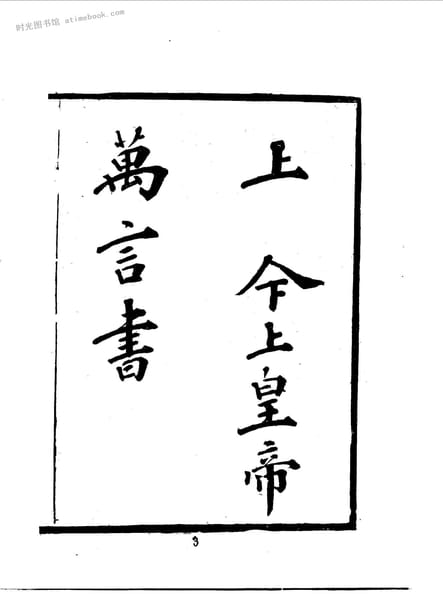 时光图书馆 atimebook.com
上 今上皇帝
萬言書
3